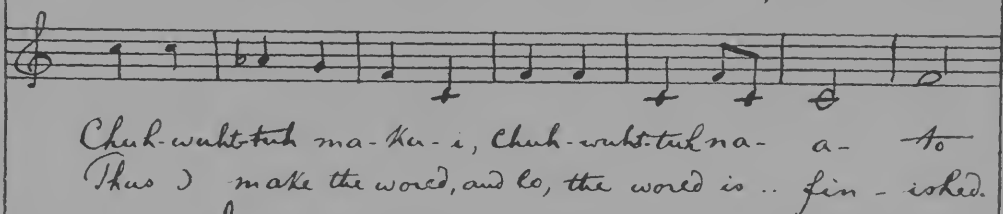 Chuh-wuht-tuh ma-ka-i, Chuh-wuht-tuh na- a- to
Thus I make the world, and lo, the world is .. fin - ished.